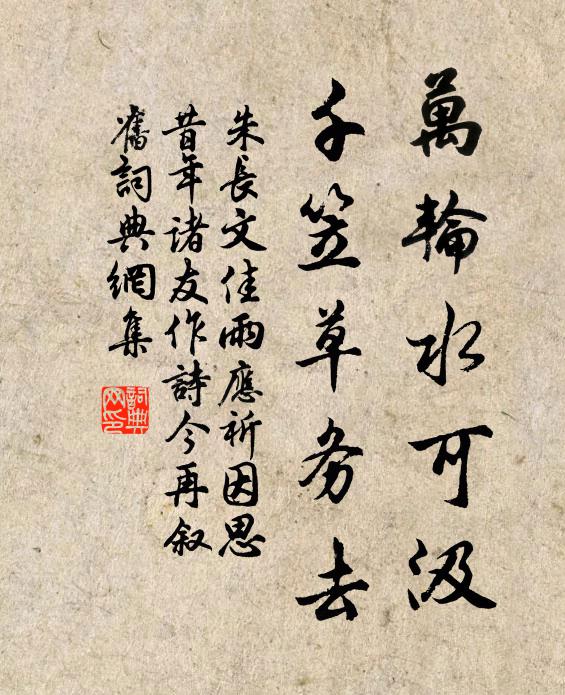 萬輪水可汲
千笠草务去
朱長文佳雨應祈因思
昔年诸友作詩今再叙
舊詞典網集
詞典
网印